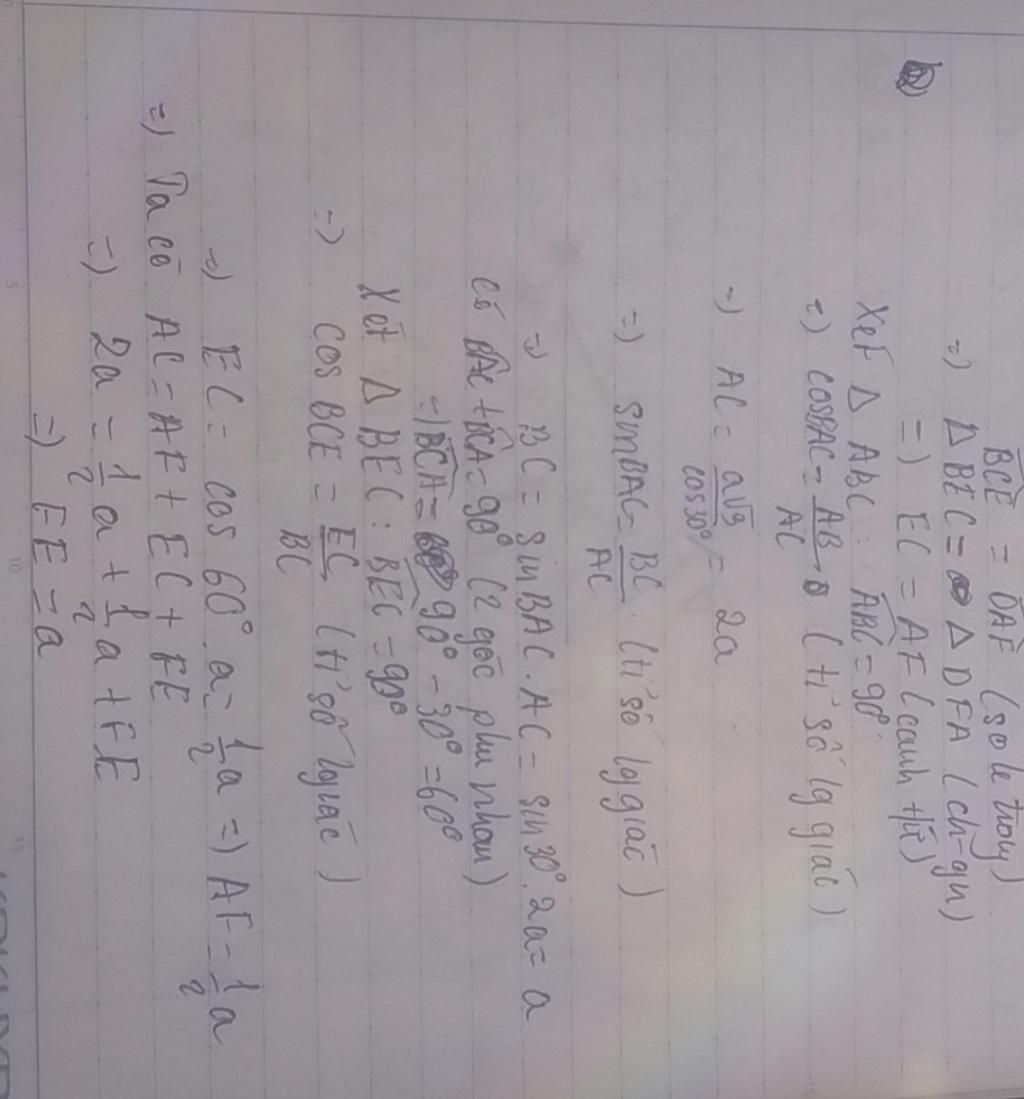 BCE = DAF (so le trong)
=) Δ BEC = Δ DFA (ch-gn)
=) EC = AF (cạnh t/ứ)
Xét Δ ABC: ABC = 90°
=) cosBAC = AB/AC (tỉ số lg giác)
=) AC = a√3/cos30° = 2a
=) sinBAC = BC/AC (tỉ số lg giác)
=) BC = sinBAC.AC = sin30°.2a = a
Có BAC + BCA = 90° (2 góc phụ nhau)
=) BCA = 90° - 30° = 60°
Xét Δ BEC: BEC = 90°
=) cos BCE = EC/BC (tỉ số lg giác)
=) EC = cos 60°.a = 1/2 a =) AF = 1/2 a
=) Ta có AC = AF + EC + FE
=) 2a = 1/2 a + 1/2 a + FE
=) FE = a